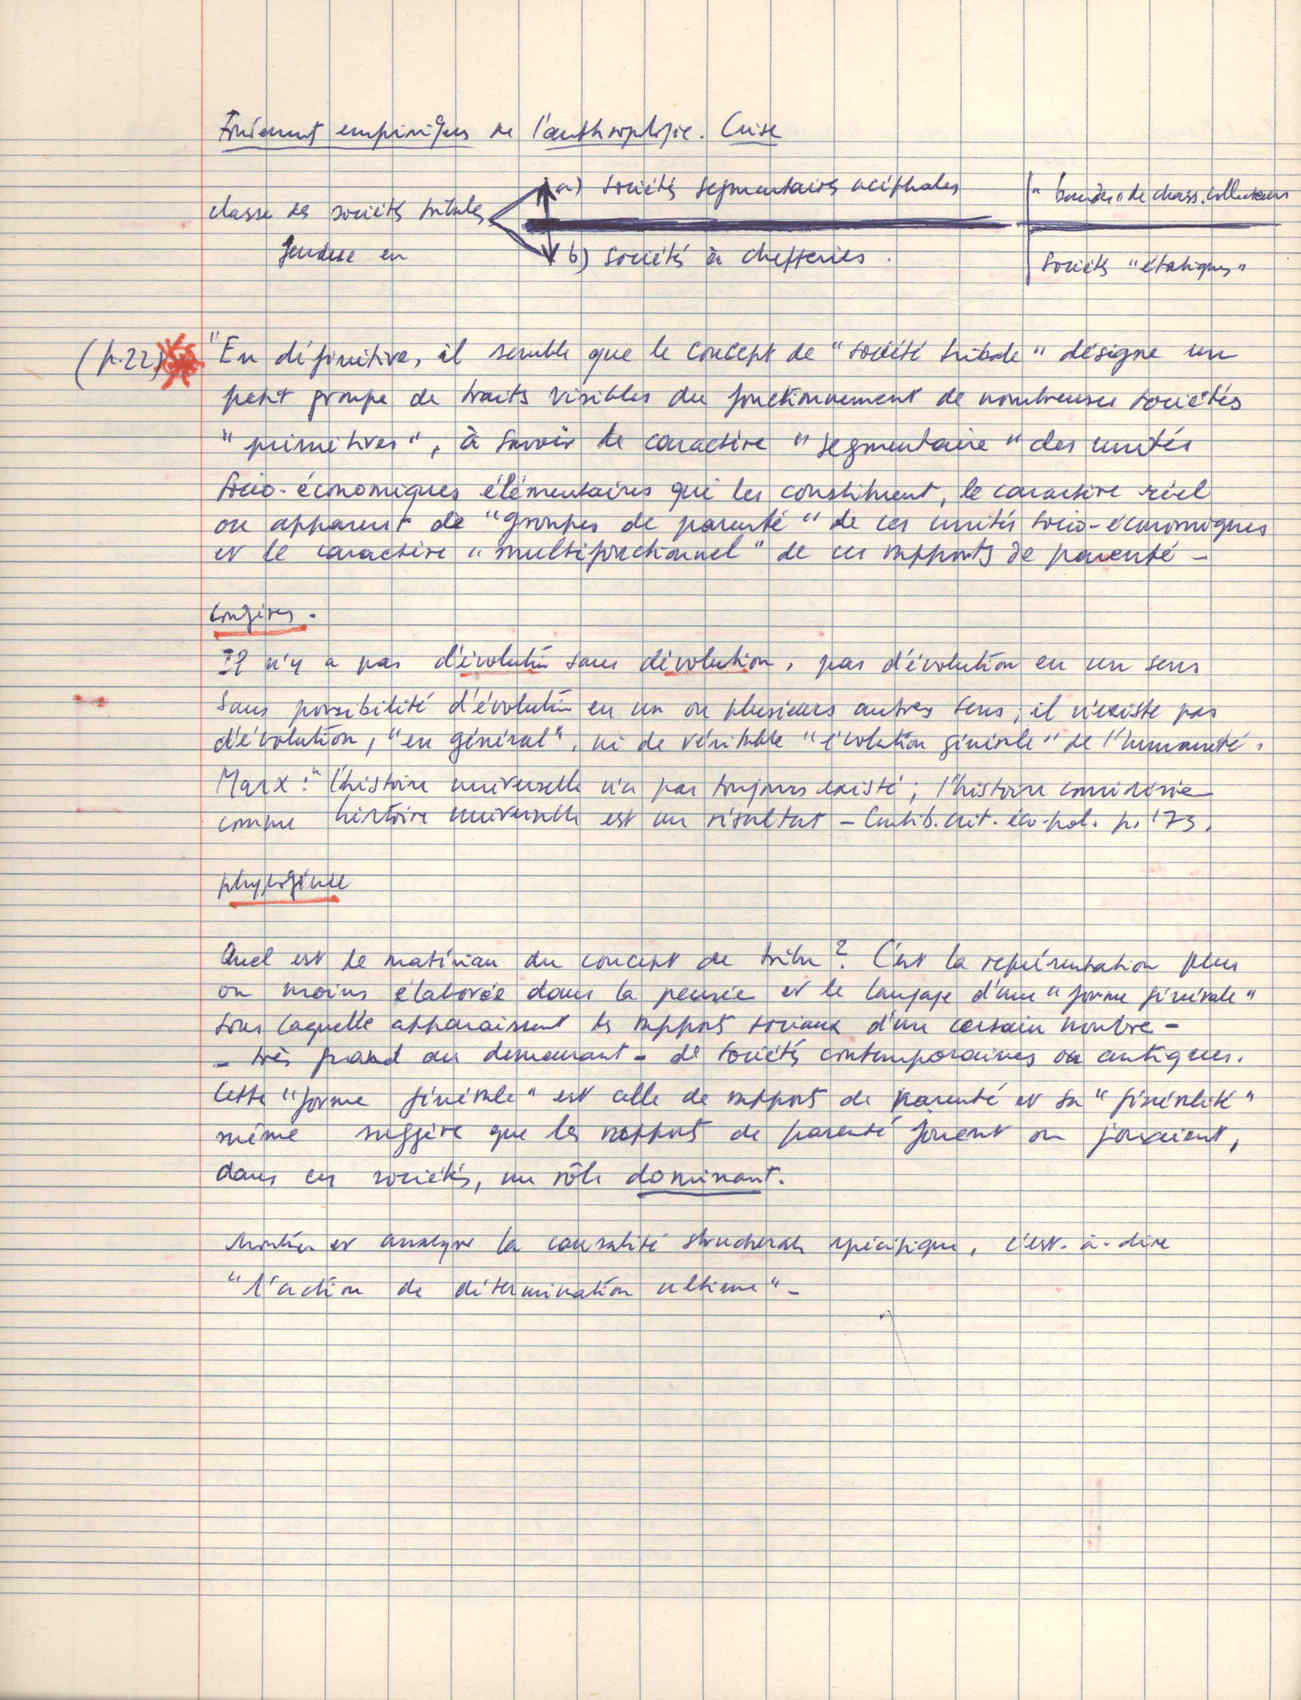 Fondement empiriques de l'anthropologie. Crise
a) sociétés segmentaires acéphales
"bandes" de chass. collecteurs
classe des sociétés tribales
se fendue en
b) sociétés à chefferies.
sociétés "étatiques"
(p.22) "En définitive, il semble que le concept de "société tribale" désigne un
petit groupe de traits visibles du fonctionnement de nombreuses sociétés
"primitives", à savoir le caractère "segmentaire" des unités
socio-économiques élémentaires qui les constituent, le caractère réel
ou apparent de "groupes de parenté" de ces unités socio-économiques
et le caractère "multifonctionnel" de ces rapports de parenté -
Il n'y a pas d'évolution sans dévolution, pas d'évolution en un sens
sans possibilité d'évolution en un ou plusieurs autres sens; il n'existe pas
d'évolution, "en général", ni de véritable "évolution générale" de l'humanité.
Marx : "l'histoire universelle n'a pas toujours existé ; l'histoire considérée
comme histoire universelle est un résultat - Contib. crit. éco-pol. p. 173.
Quel est le matériau du concept de tribu ? C'est la représentation plus
ou moins élaborée dans la pensée et le langage d'une "forme générale"
sous laquelle apparaissent les rapports sociaux d'un certain nombre -
- très grand au demeurant - de sociétés contemporaines ou antiques.
Cette "forme générale" est celle de rapports de parenté et sa "généralité"
même suggère que les rapports de parenté jouent ou jouaient,
dans ces sociétés, un rôle dominant.
Montrer et analyser la causalité structurale spécifique, c'est-à-dire
"l'action de détermination ultime" -